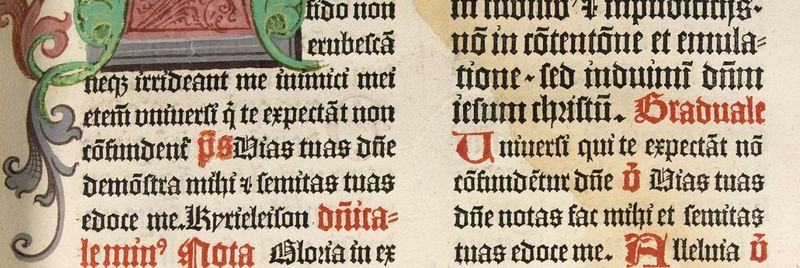 fido non
erubescā
neqꝫ irrideant me inimici mei
etem̄ vniuersi q̄ te expectāt non
cōfundent᷑ p̄s Vias tuas dn̄e
demōstra mihi ⁊ semitas tuas
edoce me. Kyrieleison dn̄ica⸗
le minꝰ Nota Gloria in ex
nō in cōtentōne et emula⸗
tione · sed induimī dn̄m
iesum christū. Graduale
Uniuersi qui te expectāt nō
cōfundētur dn̄e v̄ Vias tuas
dn̄e notas fac mihi et semitas
tuas edoce me. Alleluia v̄